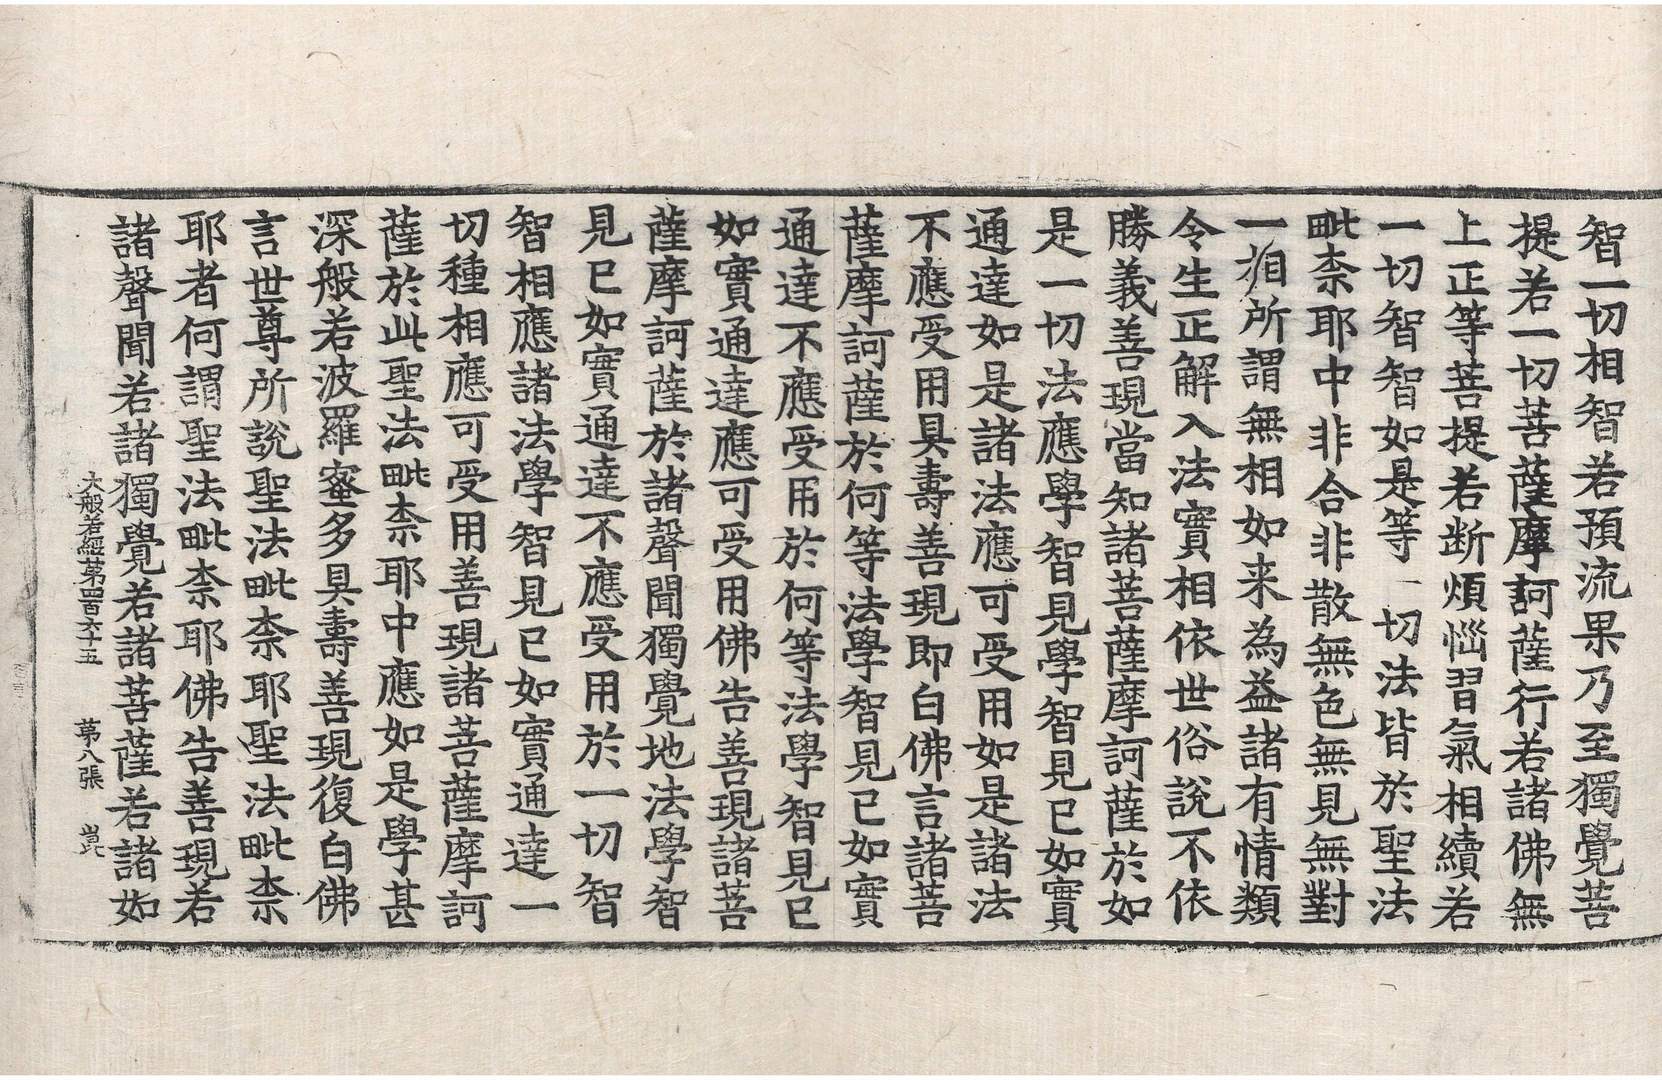 智一切相智若預流果乃至獨覺菩
提若一切菩薩摩訶薩行若諸佛無
上正等菩提若断煩惱習氣相續若
一切智智如是等一切法皆於聖法
毗柰耶中非合非散無色無見無對
一相所謂無相如来為益諸有情類
令生正解入法實相依世俗說不依
勝義善現當知諸菩薩摩訶薩於如
是一切法應學智見學智見已如實
通達如是諸法應可受用如是諸法
不應受用具壽善現即白佛言諸菩
薩摩訶薩於何等法學智見已如實
通達不應受用於何等法學智見已
如實通達應可受用佛告善現諸菩
薩摩訶薩於諸聲聞獨覺地法學智
見已如實通達不應受用於一切智
智相應諸法學智見已如實通達一
切種相應可受用善現諸菩薩摩訶
薩於此聖法毗柰耶中應如是學甚
深般若波羅蜜多具壽善現復白佛
言世尊所說聖法毗柰耶聖法毗柰
耶者何謂聖法毗柰耶佛告善現若
諸聲聞若諸獨覺若諸菩薩若諸如
大般若經苐四百六十五 苐八張 崑